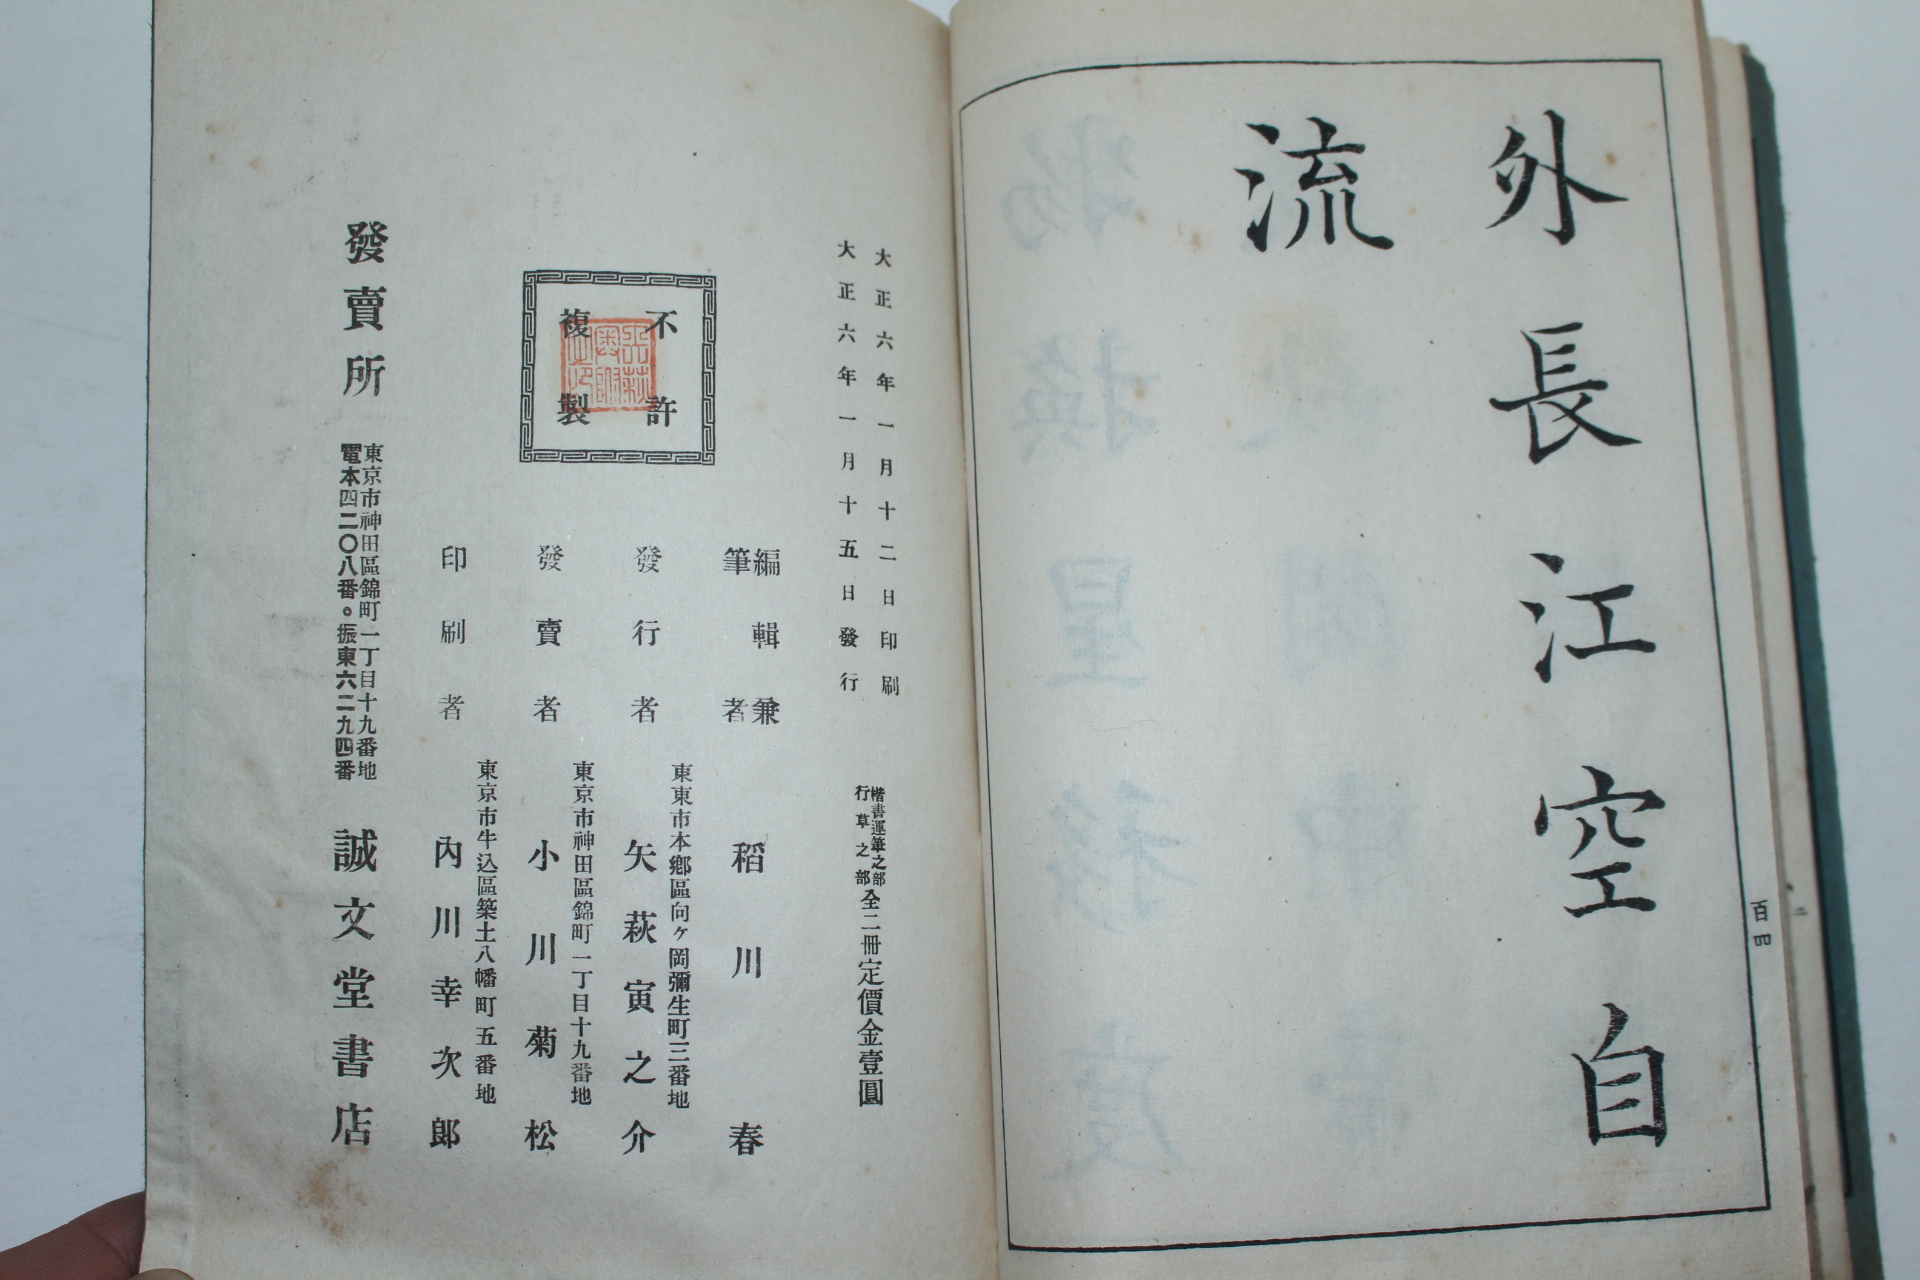 外長江空自
流
百四
大正六年一月十二日印刷
大正六年一月十五日發行
楷書運筆之部
行草之部
全二冊定價金壹圓
不許
複製
編輯兼
筆者
稻川春
東東市本鄉區向ヶ岡彌生町三番地
發行者
矢萩寅之介
東京市神田區錦町一丁目十九番地
發賣者
小川菊松
東京市牛込區築土八幡町五番地
印刷者
內川幸次郎
發賣所
東京市神田區錦町一丁目十九番地
電本四二〇八番。振東六二九四番
誠文堂書店